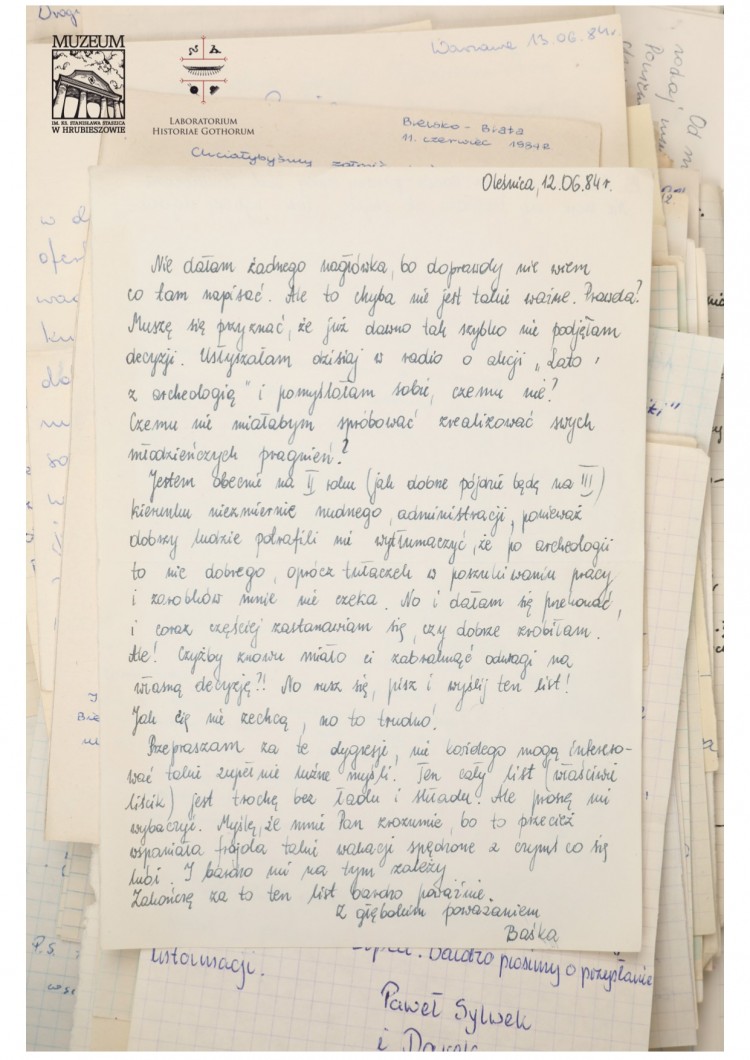 Drogi
MUZEUM
IM. KS. STANISŁAWA STASZICA
W HRUBIESZOWIE
LABORATORIUM
HISTORIAE GOTHORUM
Warszawa 13.06.84r.
Bielsko-Biała
11. czerwiec 1984r
Chciałybyśmy
Oleśnica, 12.06.84r.
Nie dałam żadnego nagłówka, bo doprawdy nie wiem
co tam napisać. Ale to chyba nie jest takie ważne. Prawda?
Muszę się przyznać, że już dawno tak szybko nie podjęłam
decyzji. Usłyszałam dzisiaj w radio o akcji „Lato
z archeologią" i pomyślałam sobie, czemu nie?
Czemu nie miałabym spróbować zrealizować swych
młodzieńczych pragnień?
Jestem obecnie na II roku (jak dobrze pójdzie będę na III)
kierunku niezmiernie nudnego, administracji, ponieważ
dobrzy ludzie potrafili mi wytłumaczyć, że po archeologii
to nic dobrego, oprócz tułaczek w poszukiwaniu pracy
i zarobków mnie nie czeka. No i dałam się przekonać,
i coraz częściej zastanawiam się, czy dobrze zrobiłam.
Ale! Czyżby znowu miało ci zabraknąć odwagi na
własną decyzję?! No rusz się, pisz i wyślij ten list!
Jak cię nie zechcą, no to trudno!
Przepraszam za te dygresje, nie każdego mogą intereso-
wać takie zupełnie luźne myśli. Ten cały list (właściwie
liścik) jest trochę bez ładu i składu. Ale proszę mi
wybaczyć. Myślę, że mnie Pan zrozumie, bo to przecież
wspaniała frajda takie wakacje spędzone z czymś co się
lubi. I bardzo mi na tym zależy
Zakończę za to ten list bardzo poważnie.
Z głębokim poważaniem
Baśka
P.S.
informacji.
Bardzo prosimy o przysłanie
Paweł Sylwek
i